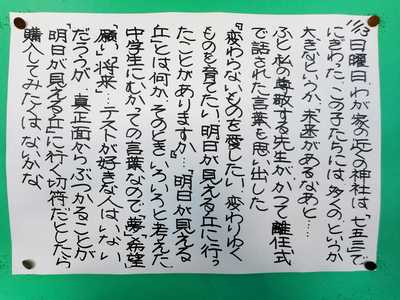 11/13日曜日、わが家の近くの神社は「七五三」で
にぎわった。この子たちには、多くの、というか
大きなというか、未来があるなあと…
ふと私の尊敬する先生が、かつて離任式
で話された言葉を思い出した。
『変わらないものを愛したい、変わりゆく
ものを育てたい、明日が見える丘に行っ
たことがありますか…』「明日が見える
丘」とは何か、そのときいろいろと考えた。
中学生にむかっての言葉なので、「夢」「希望」
「願い」「将来」…テストが好きな人はいない
だろうが、真正面からぶつかることが
「明日が見える丘」に行く切符だとしたら
購入してみたくはないかな。